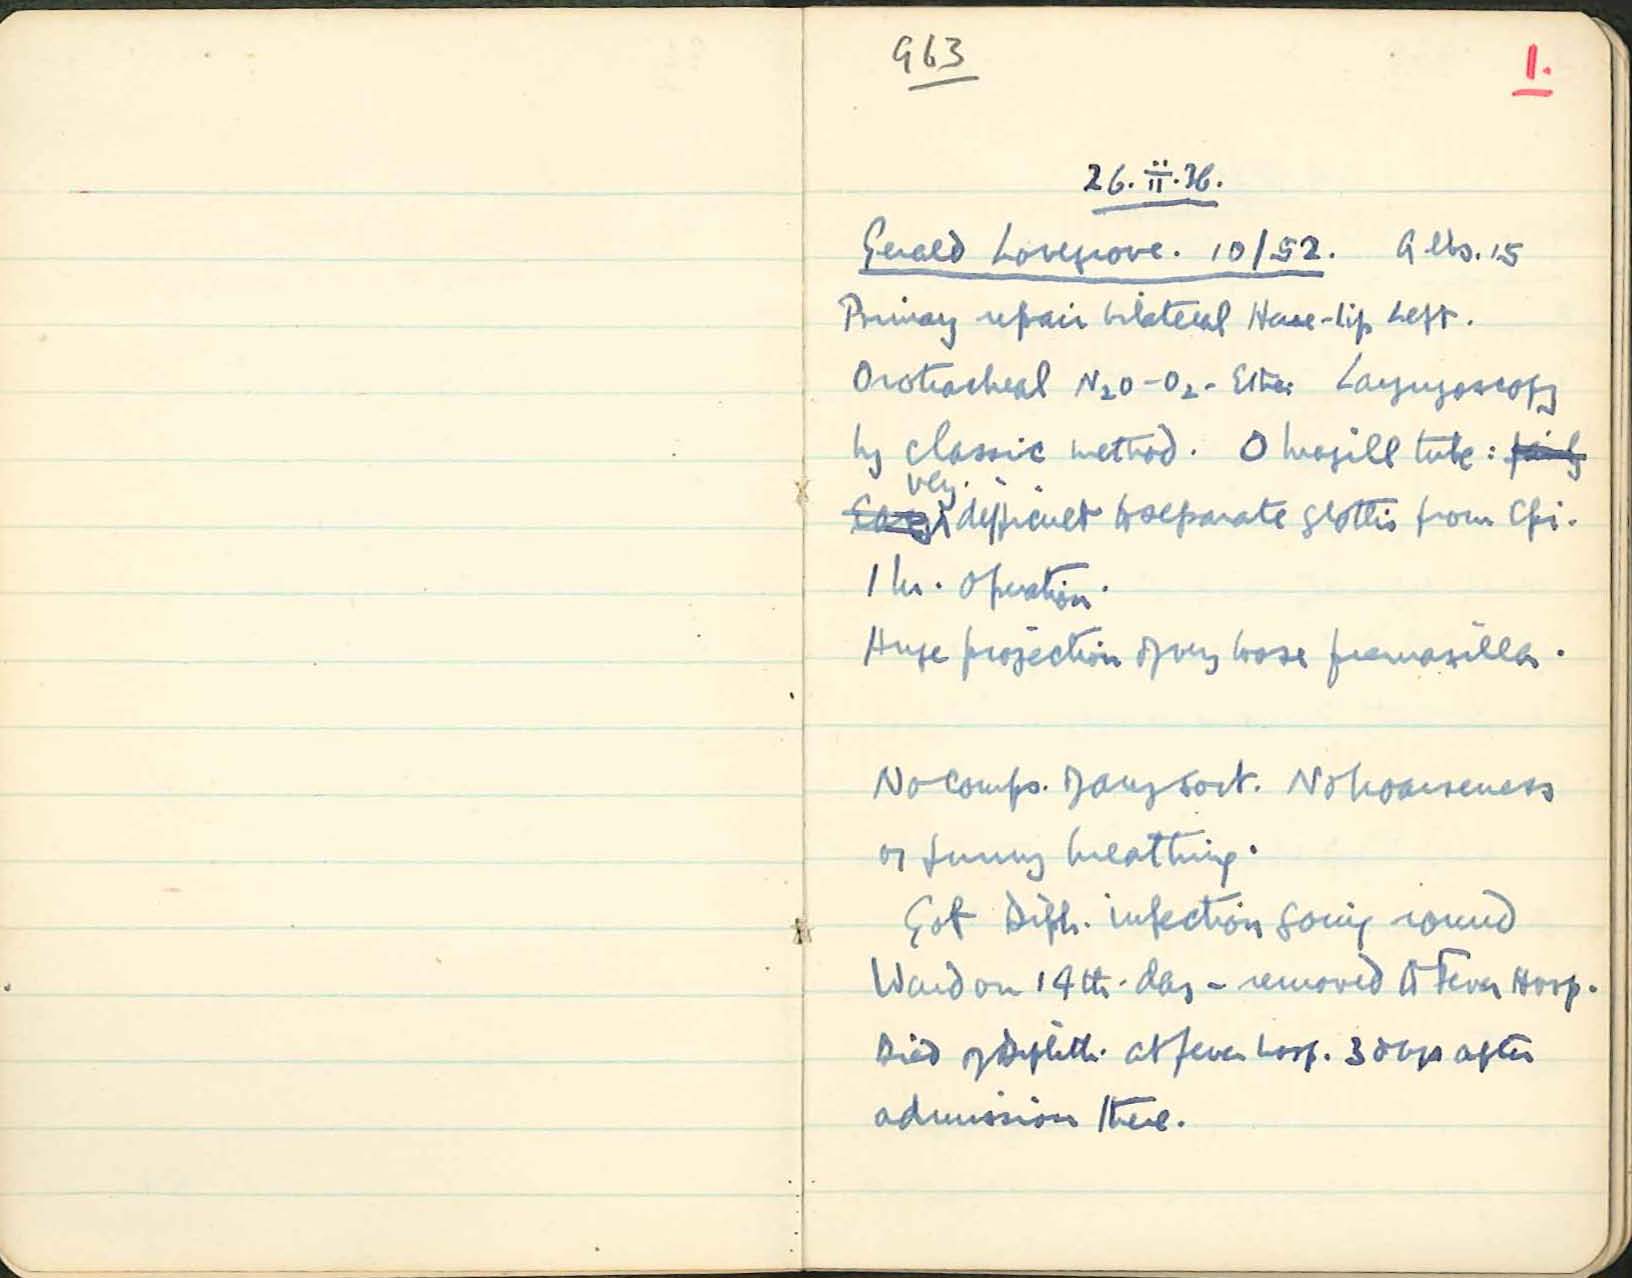 963
1.
26.ii.36.
Gerald Lovegrove. 10/52. 9 lbs. 15
Primary repair bilateral Hare-lip Left.
Orotracheal N2O-O2- Ether Laryngoscopy
by classic method. O Magill tube: fairly
very
Easy difficult to separate glottis from Epi.
1 hr. operation.
Huge projection of very loose premaxilla.
No comps. of any sort. No hoarseness
or funny breathing.
Got Diph. infection going round
Ward on 14th. day - removed to Fever Hosp.
Died of Diphth. at fever hosp. 3 days after
admission there.